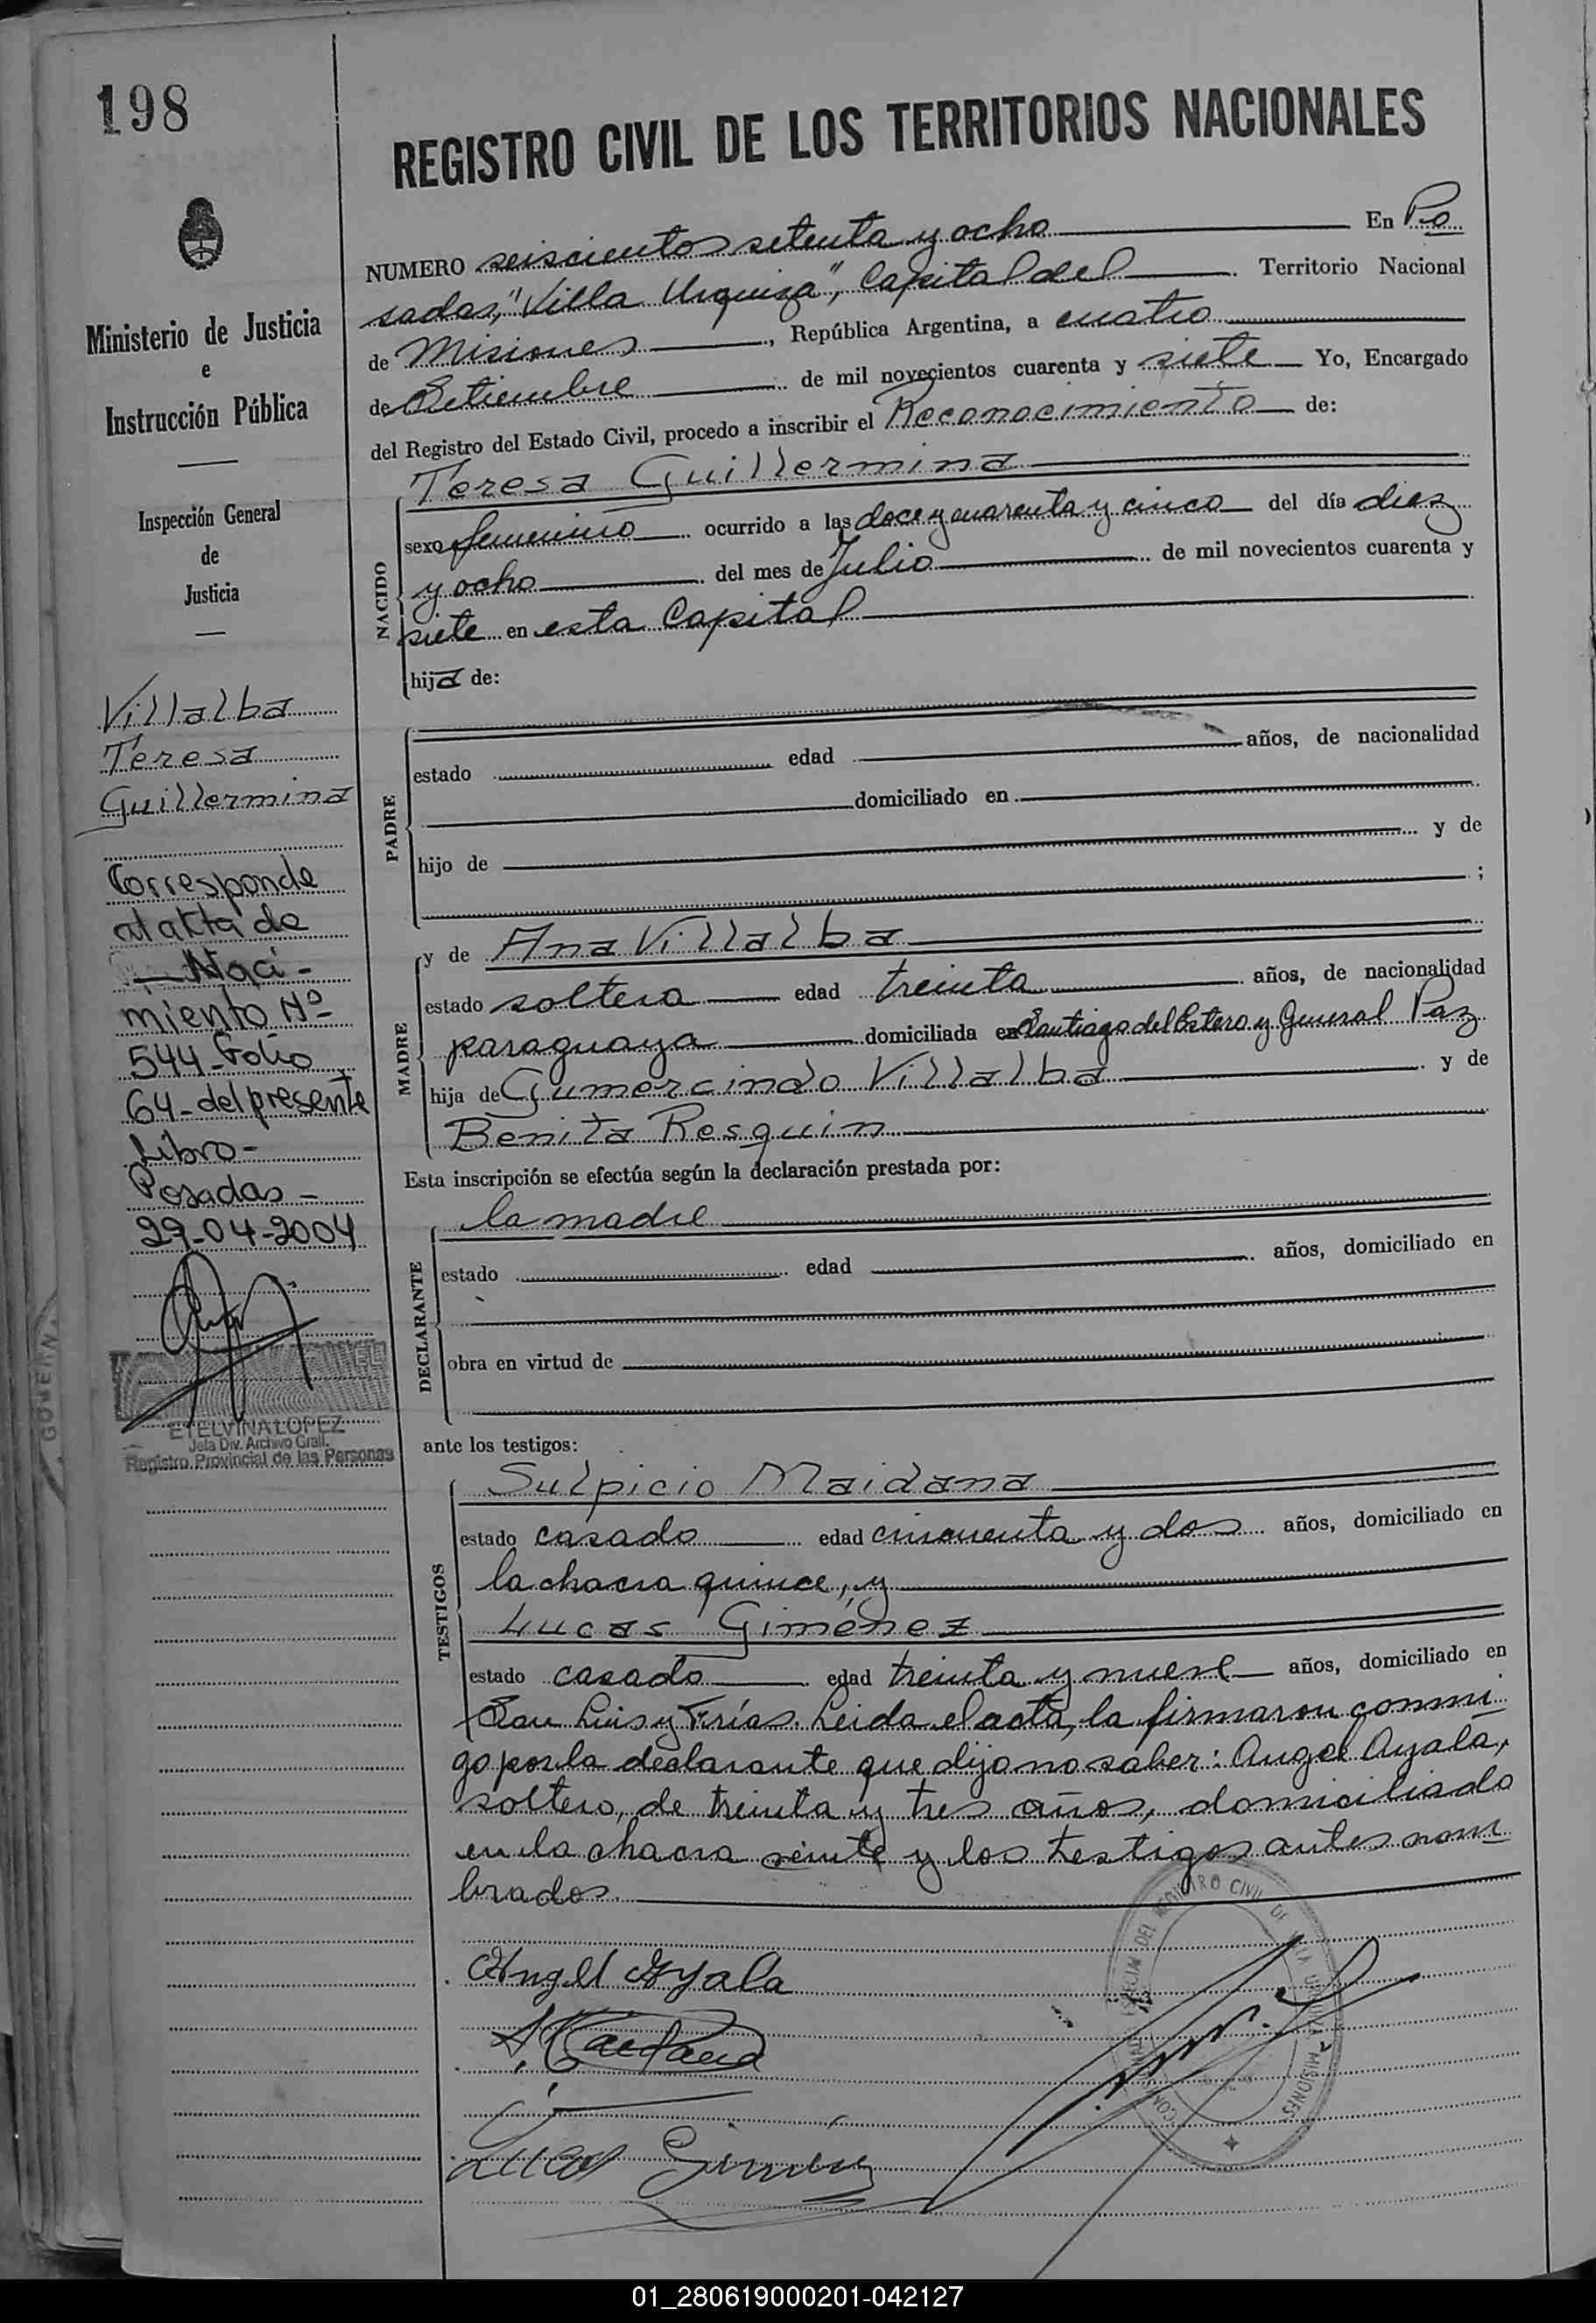 198
Ministerio de Justicia
e
Instrucción Pública
Inspección General
de
Justicia
Villalba
Teresa
Guillermina
Corresponde
al acta de
Naci-
miento Nº
544-Folio
64-del presente
Libro-
Posadas-
29-04-2004
ETELVINA LOPEZ
Jefa Div. Archivo Grall.
Registro Provincial de las Personas
REGISTRO CIVIL DE LOS TERRITORIOS NACIONALES
NUMERO seiscientos setenta y ocho En Po
sadas, "Villa Urquiza", Capital del Territorio Nacional
de Misiones, República Argentina, a cuatro
de Setiembre de mil novecientos cuarenta y siete Yo, Encargado
del Registro del Estado Civil, procedo a inscribir el Reconocimiento de:
NACIDO
Teresa Guillermina
sexo femenino ocurrido a las doce y cuarenta y cinco del día diez
y ocho del mes de Julio de mil novecientos cuarenta y
siete en esta Capital
hija de:
PADRE
estado edad años, de nacionalidad
domiciliado en
hijo de y de
;
MADRE
y de Ana Villalba
estado soltera edad treinta años, de nacionalidad
paraguaya domiciliada en Santiago del Estero y General Paz
hija de Gumercindo Villalba y de
Benita Resquin
Esta inscripción se efectúa según la declaración prestada por:
DECLARANTE
la madre
estado edad años, domiciliado en
obra en virtud de
ante los testigos:
TESTIGOS
Sulpicio Maidana
estado casado edad cincuenta y dos años, domiciliado en
la chacra quince, y
Lucas Giménez
estado casado edad treinta y nueve años, domiciliado en
San Luis y Frías. Leida el acta, la firmaron conmi
go por la declarante que dijo no saber: Angel Ayala,
soltero, de treinta y tres años, domiciliado
en la chacra veinte y los testigos antes nom
brados.
Angel Ayala
S. Maidana
Lucas Giménez
DEL REGISTRO CIVIL DE VILLA URQUIZA MISIONES
01_280619000201-042127